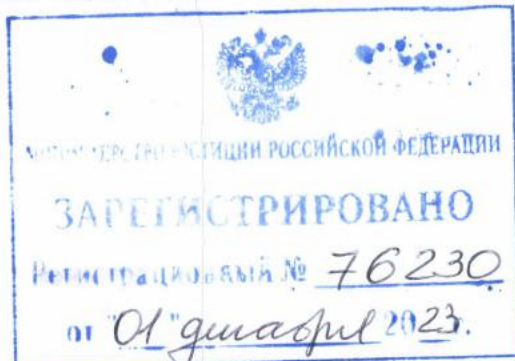 МИНИСТЕРСТВО ЮСТИЦИИ РОССИЙСКОЙ ФЕДЕРАЦИИ
ЗАРЕГИСТРИРОВАНО
Регистрационный № 76230
от "01" декабря 2023.